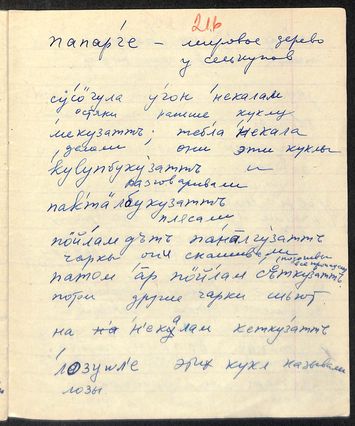 21б
папар́ге – мировое дерево
у селькупов
су́со̄гула у́гон не́калам
остяки раньше куклу
ме́кузатть; тебла не́кала
делали; они эти куклы
ку́купбуку́затть и
разговаривали
пакта́лбукузатть
плясали
по̄йлам дъть пана́лгу́затть
чарки они
патом а̄р по̄йлам се̄ткуза́тть.
потом другие чарки шьют.
на не́ка́лам кетку́затть
ло́зуле этих кукл называли
лозы.